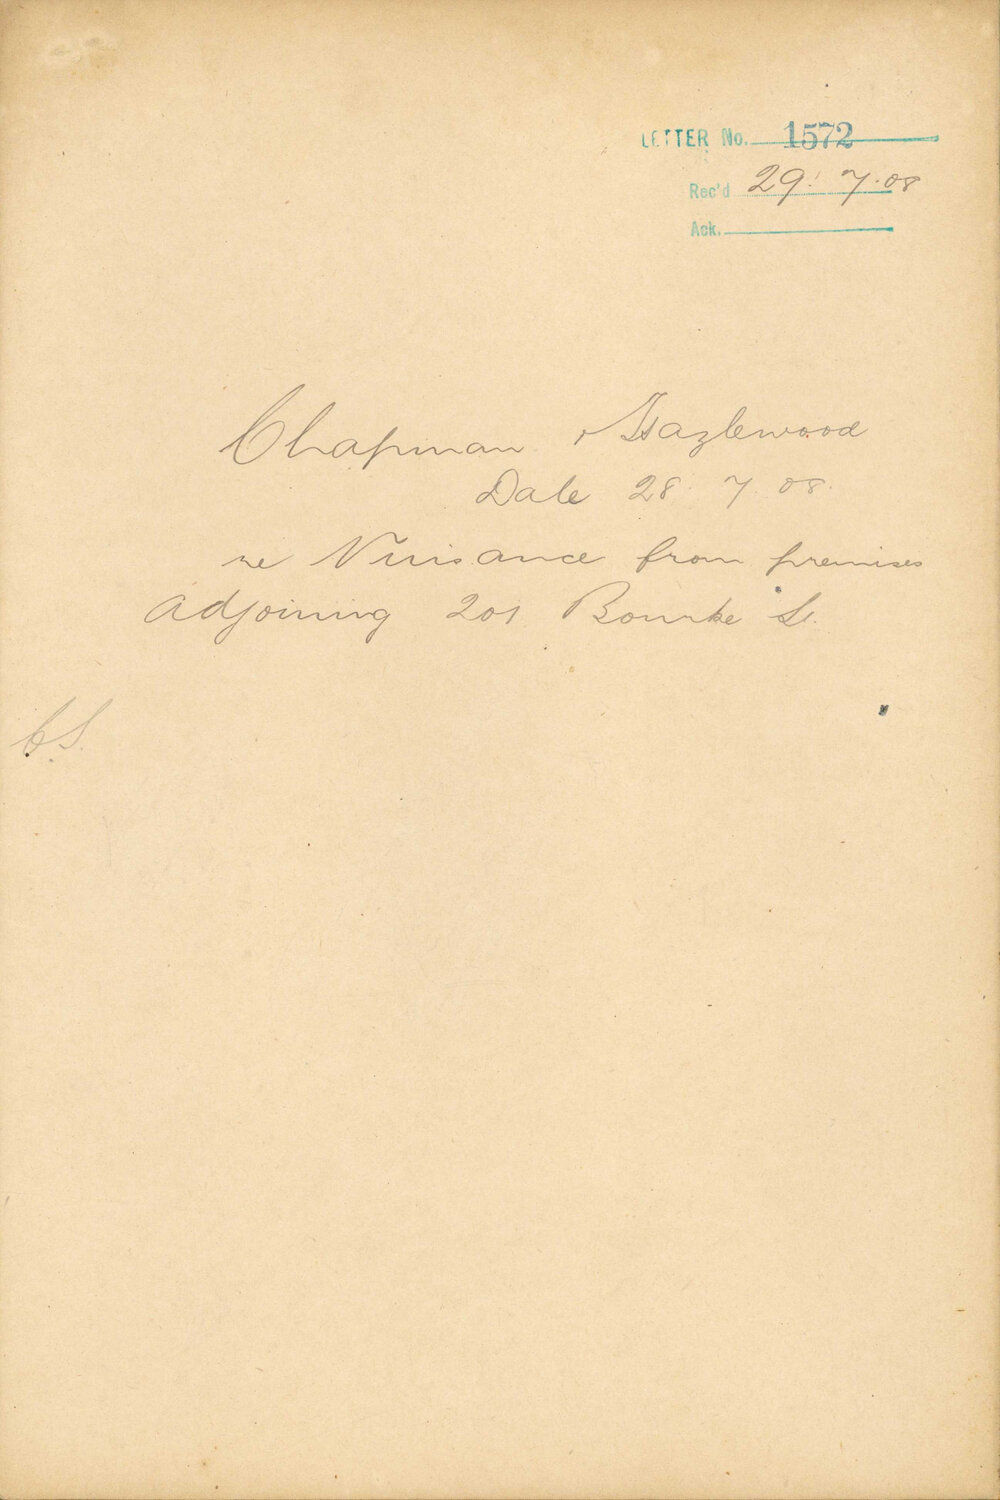 LETTER No. 1572
Rec'd 29. 7. 08
Ack.
Chapman & Hazlewood
Date 28. 7. 08.
re Nuisance from premises
adjoining 201 Bourke St.